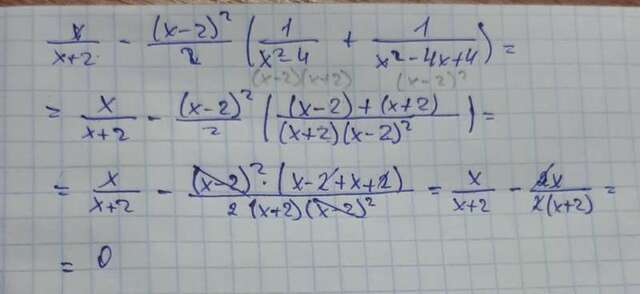 x/(x+2) - (x-2)²/2 (1/(x²-4) + 1/(x²-4x+4)) =
(x-2)(x+2) (x-2)²
= x/(x+2) - (x-2)²/2 (((x-2)+(x+2))/((x+2)(x-2)²)) =
= x/(x+2) - ((x-2)²·(x-2+x+2))/(2(x+2)(x-2)²) = x/(x+2) - 2x/(2(x+2)) =
= 0